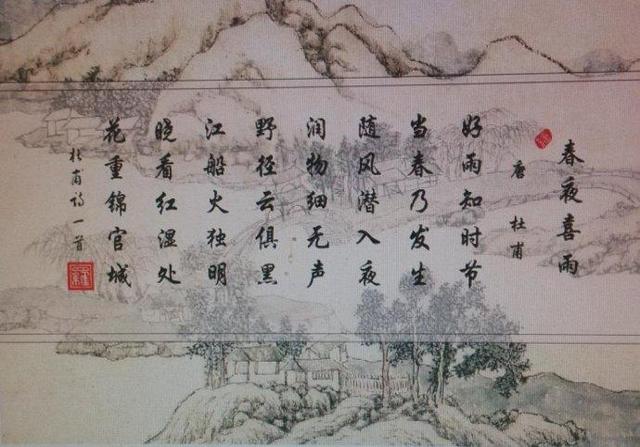 春夜喜雨
唐 杜甫
好雨知时节
当春乃发生
随风潜入夜
润物细无声
野径云俱黑
江船火独明
晓看红湿处
花重锦官城
杜甫诗一首